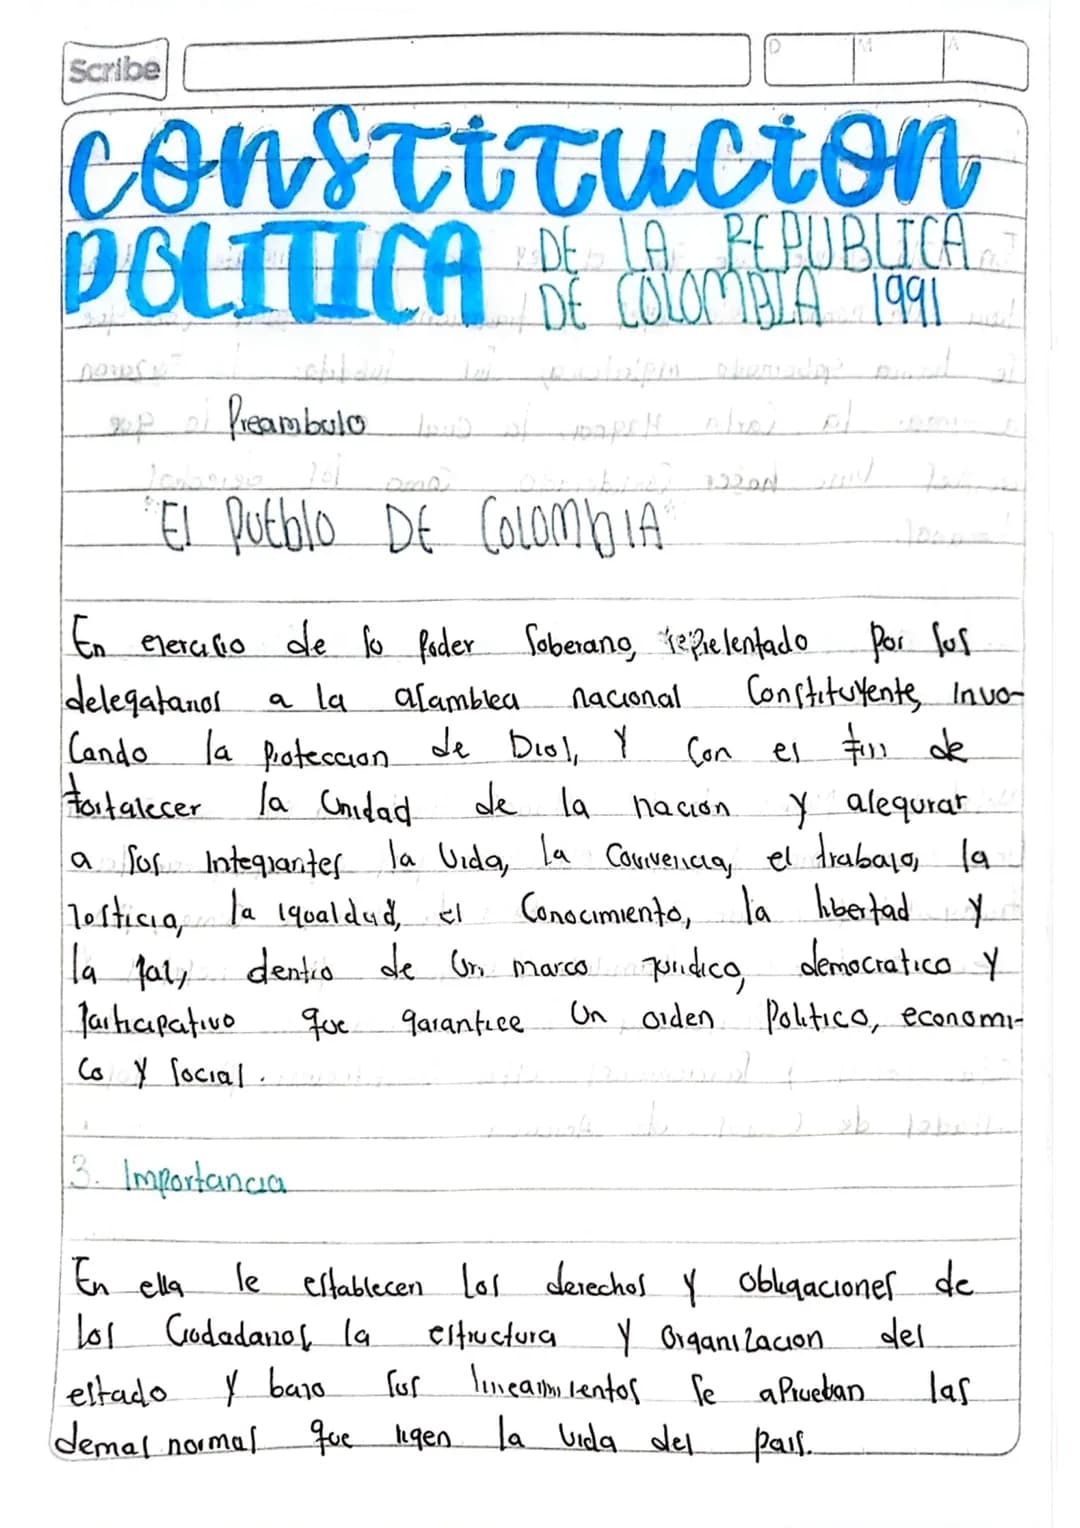 Scribe
D M A
CONSTITUCION
POLITICA DE LA REPUBLICA
DE COLOMBIA 1991
Preambulo
"El Pueblo DE COLOMbIA"
En ejercisio de so Poder Soberano, representado Por sus
delegatarios a la asamblea nacional Constituyente, Invo-
Cando la Proteccion de Dios, Y Con es fin de
fortalecer la Unidad de la nacion y asegurar
a sus Integrantes la Vida, La Convivencia, el trabajo, la
Josticia, la igualdad, el Conocimiento, la libertad y
la Paz, dentro de Un marco Juridico, democratico y
Participativo que garantice Un orden Politico, economi-
Co y Social.
3. Importancia
En ella se establecen Los derechos y Obligaciones de
Los Ciudadanos, la estructura y Organizacion del
estado y bajo sus lineamientos Se aPrueban las
demas normas que rigen la Vida del pais.